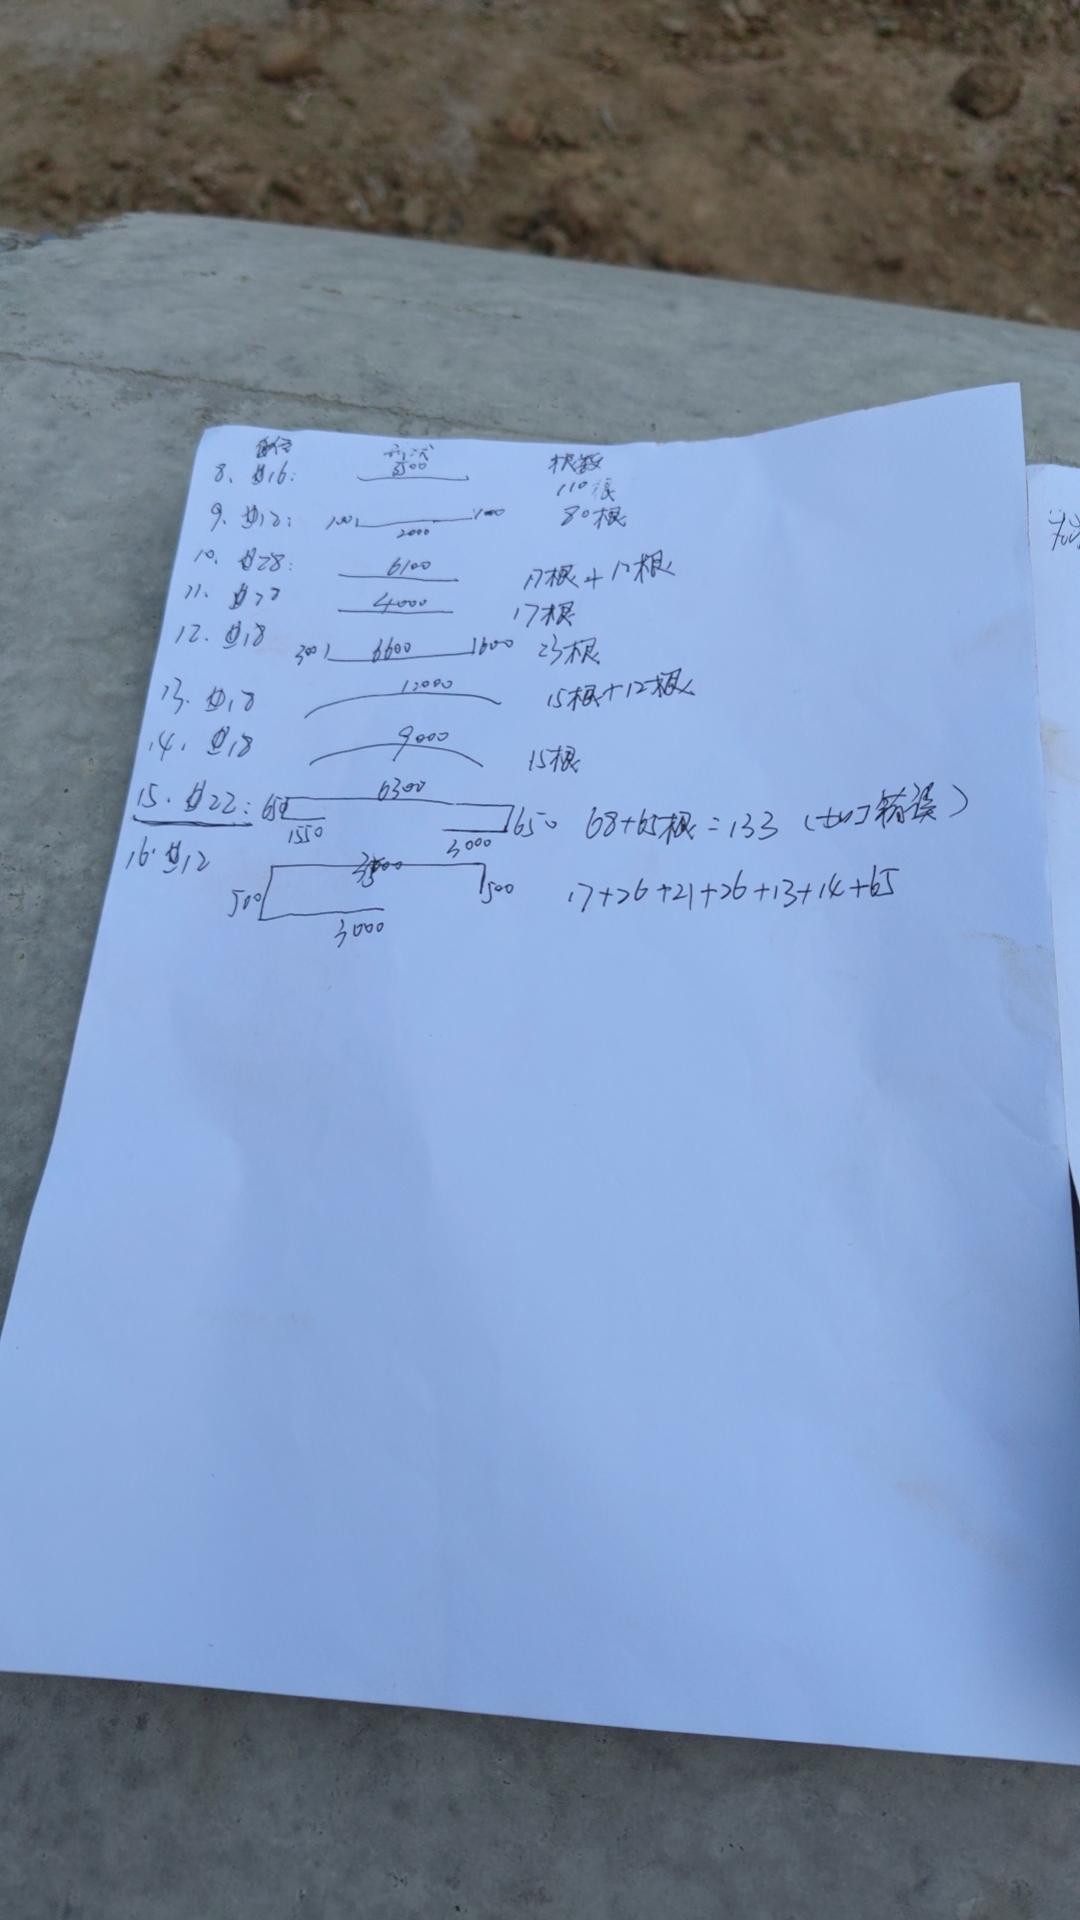 根数
8. ⌀16: 5500 110根
9. ⌀12: 100 2000 80根
10. ⌀28: 6100 17根+17根
11. 4000 17根
12. ⌀18 300 6600 1600 23根
13. ⌀18 12000 15根+12根
14. ⌀18 9000 15根
15. ⌀22: 650 6300 1550 3000 650 68+65根=133 (切错误)
16. ⌀12 500 3000 500 17+26+21+26+13+14+65